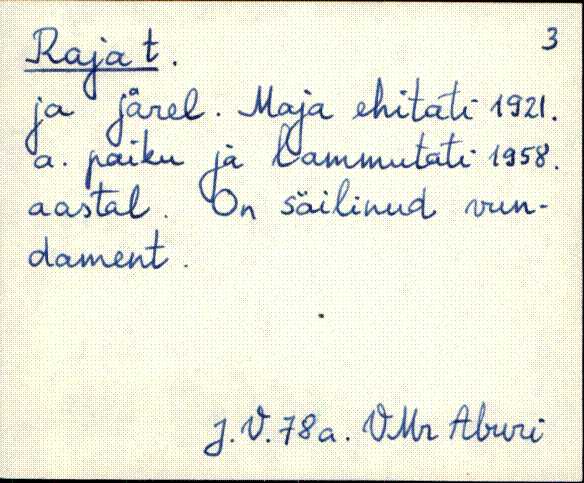 Raja t.
3
ja järel. Maja ehitati 1921.
a. paiku ja lammutati 1958.
aastal. On säilinud vun-
dament.
J.V. 78a. VMr Aburi